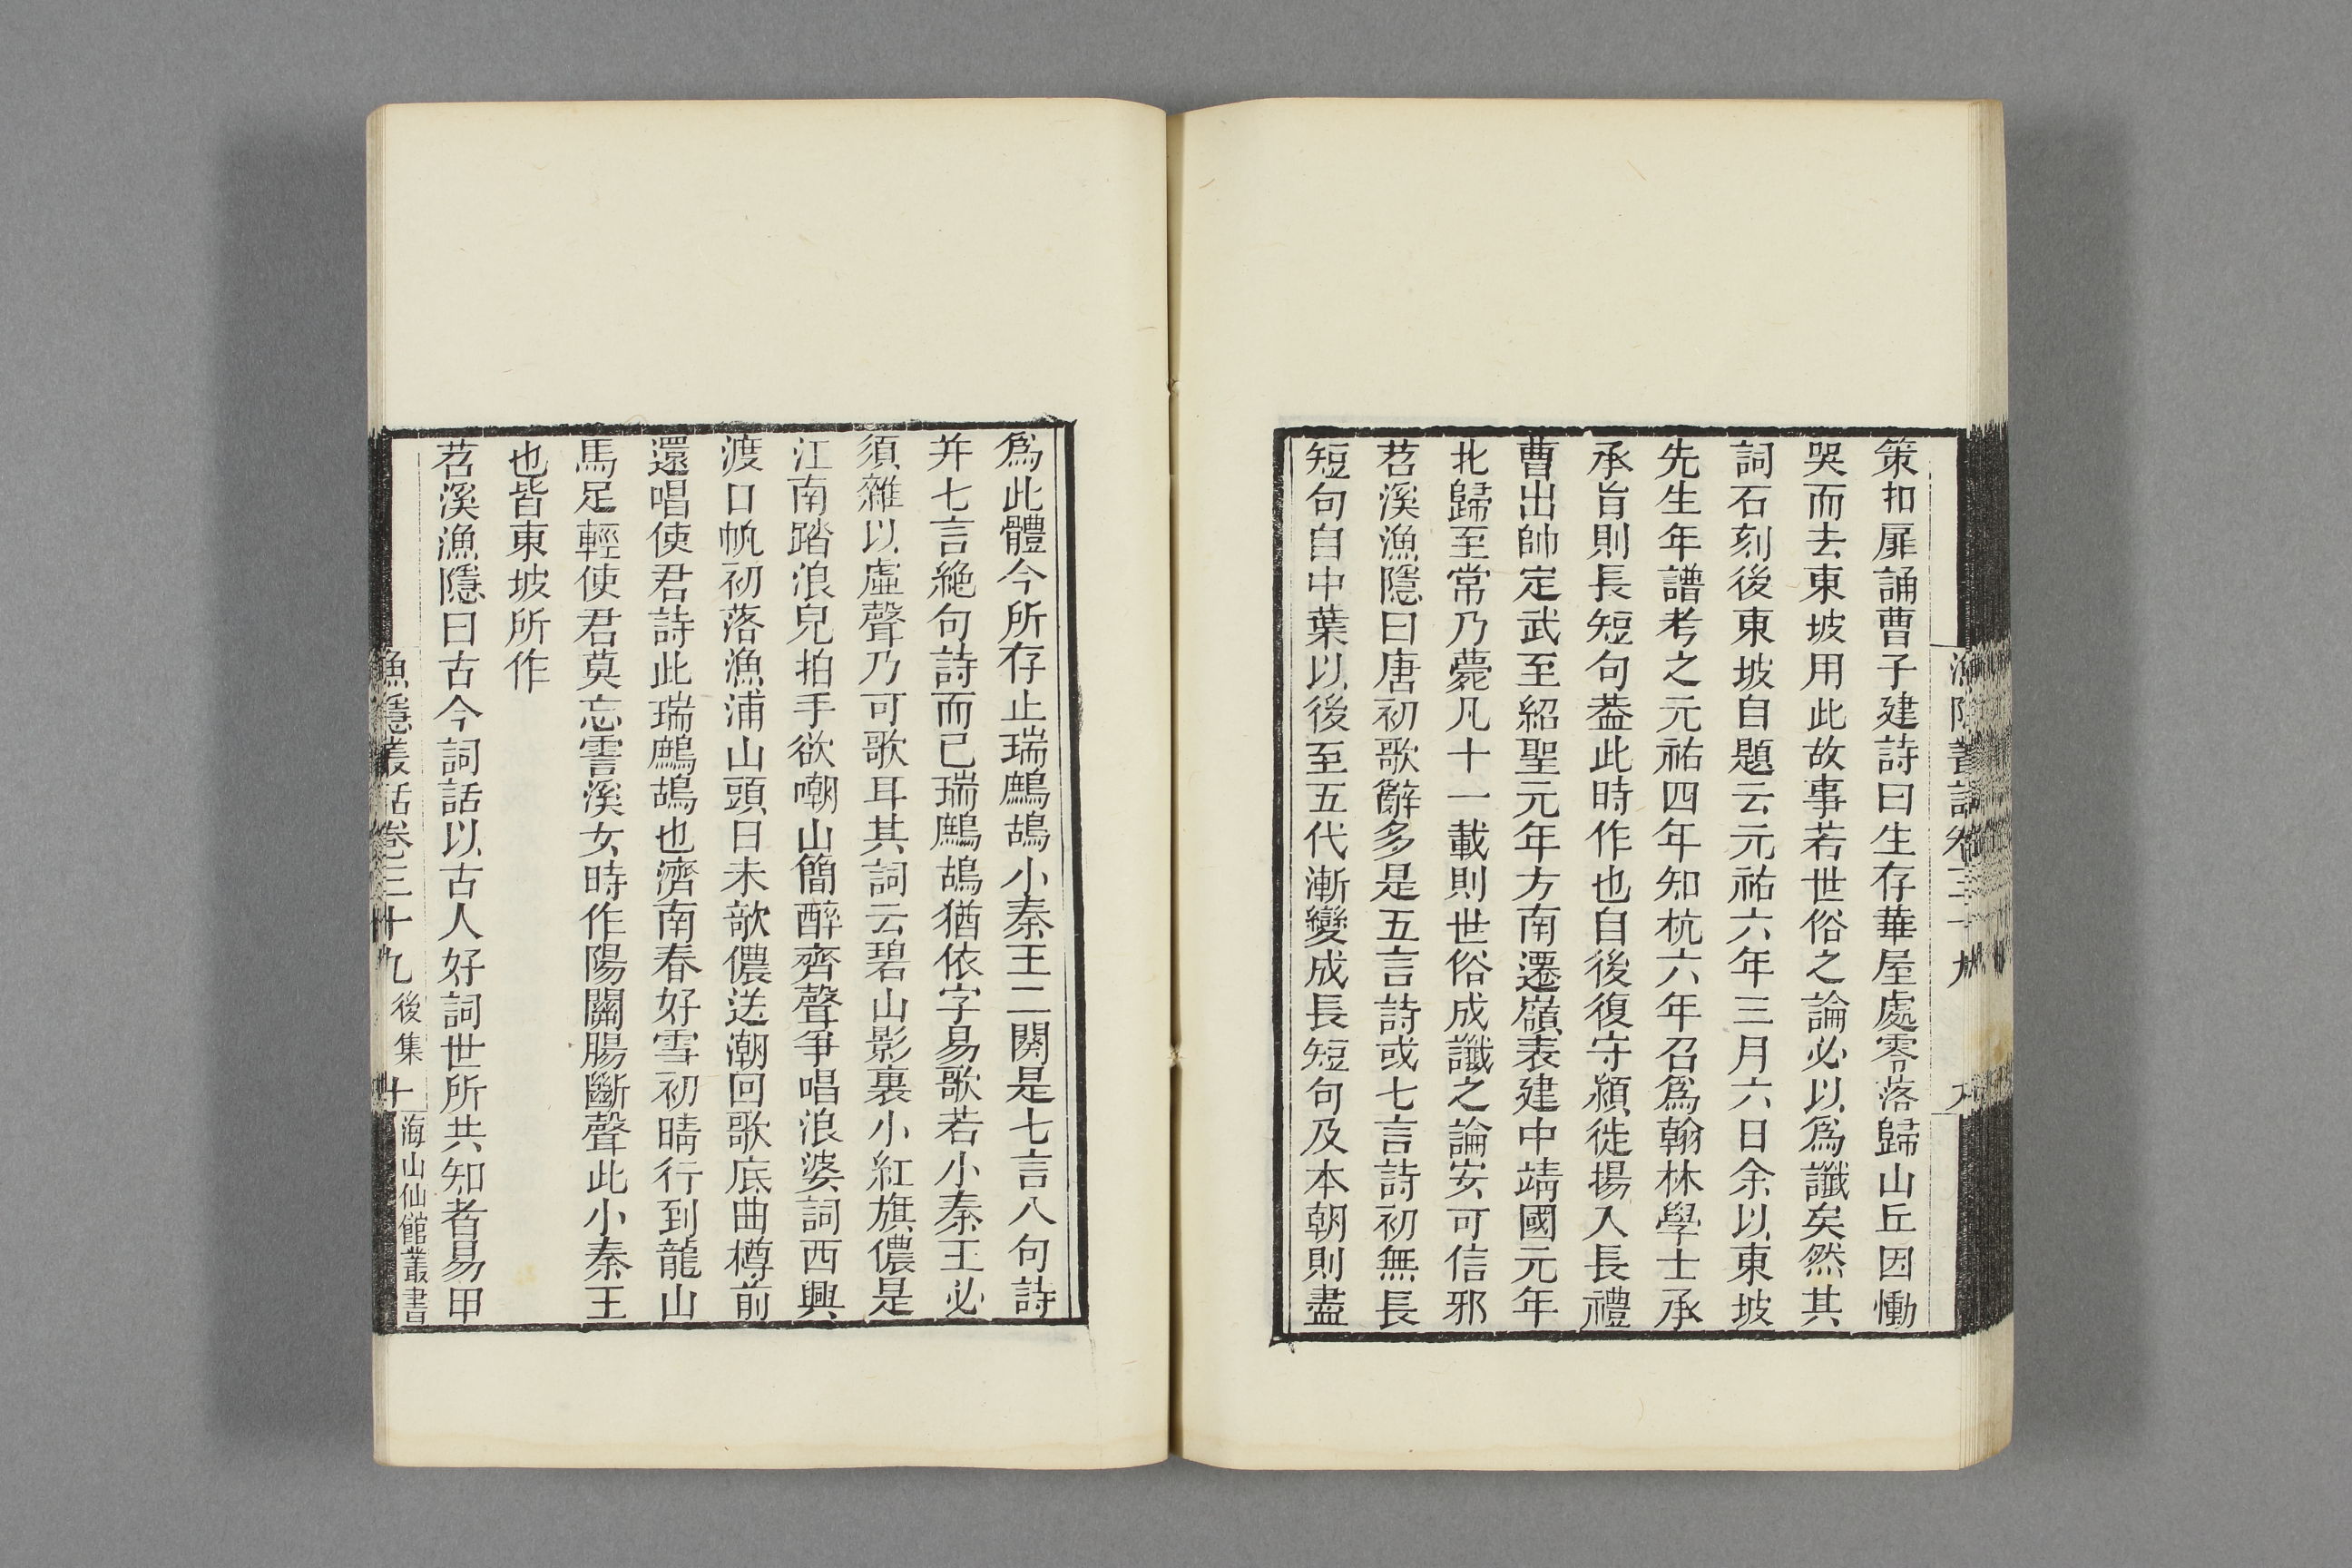 策扣扉誦曹子建詩曰生存華屋處零落歸山丘因慟
哭而去東坡用此故事若世俗之論必以爲讖矣然其
詞石刻後東坡自題云元祐六年三月六日余以東坡
先生年譜考之元祐四年知杭六年召爲翰林學士承
承旨則長短句葢此時作也自後復守潁徙揚入長禮
曹出帥定武至紹聖元年方南遷嶺表建中靖國元年
北歸至常乃薨凡十一載則世俗成讖之論安可信邪
苕溪漁隱曰唐初歌辭多是五言詩或七言詩初無長
短句自中葉以後至五代漸變成長短句及本朝則盡
爲此體今所存止瑞鷓鴣小秦王二闋是七言八句詩
并七言絶句詩而已瑞鷓鴣猶依字易歌若小秦王必
須雜以虛聲乃可歌耳其詞云碧山影裏小紅旗儂是
江南踏浪兒拍手欲嘲山簡醉齊聲爭唱浪婆詞西興
渡口帆初落漁浦山頭日未欹儂送潮回歌底曲樽前
還唱使君詩此瑞鷓鴣也濟南春好雪初晴行到龍山
馬足輕使君莫忘霅溪女時作陽關腸斷聲此小秦王
也皆東坡所作
苕溪漁隱曰古今詞話以古人好詞世所共知者易甲
漁隱叢話卷三十九 後集 十 海山仙館叢書